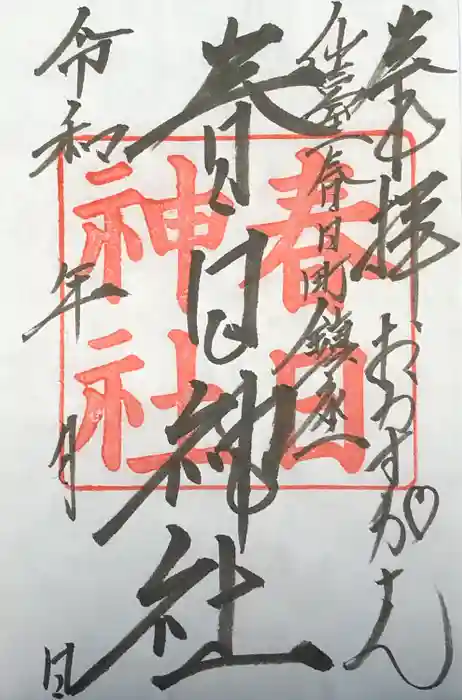 奉拝
おわすかさん
仙臺春日町鎮座
春日神社
令和 年 月 日
春日
神社